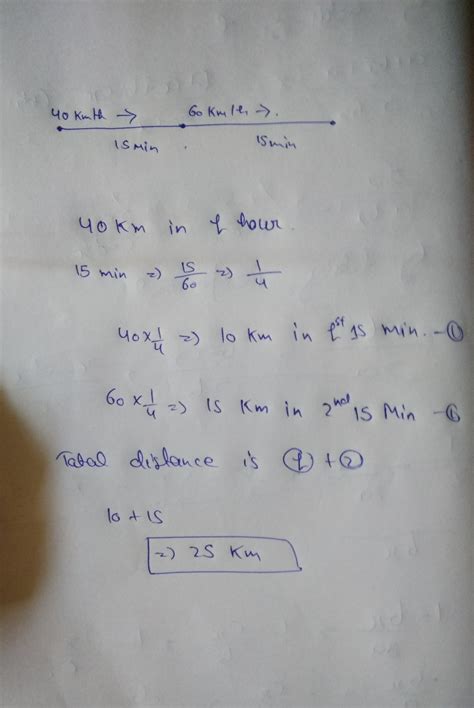 40 Km/h → 60 Km/h →.
15 Min . 15 min
40 Km in 1 hour.
15 min => 15/60 => 1/4
40 x 1/4 => 10 Km in 1st 15 min. - ①
60 x 1/4 => 15 Km in 2nd 15 Min -
Total distance is ① + ②
10 + 15
=> 25 Km